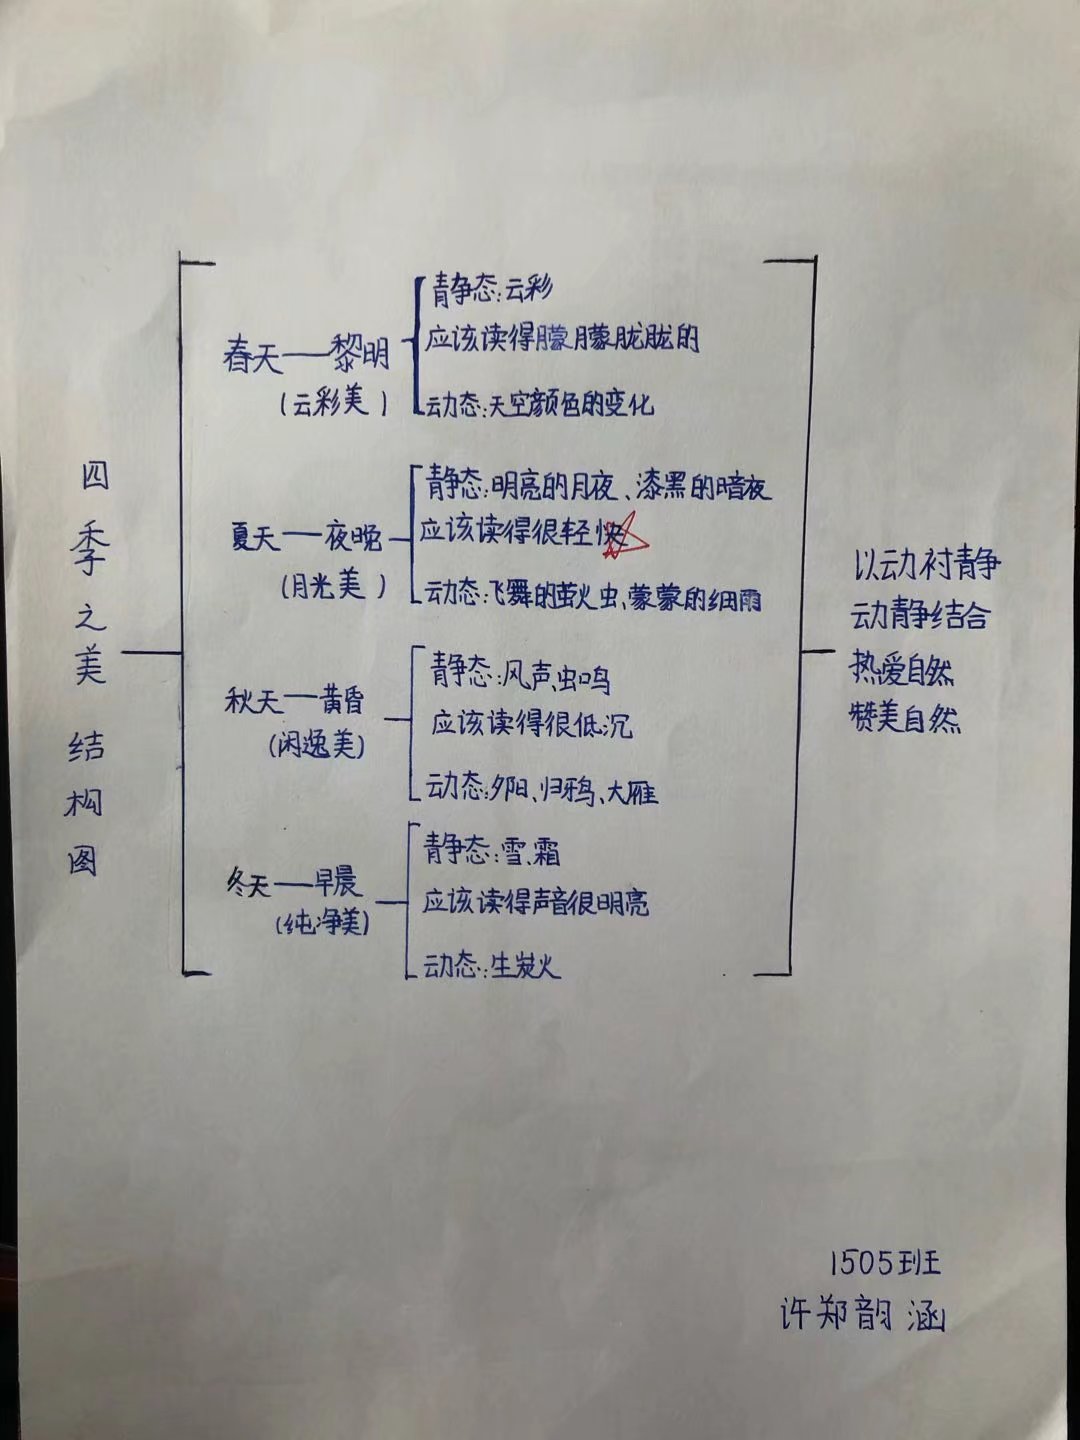 四季之美 结构图
春天——黎明
(云彩美)
静态:云彩
应该读得朦朦胧胧的
动态:天空颜色的变化
夏天——夜晚
(月光美)
静态:明亮的月夜、漆黑的暗夜
应该读得很轻快
动态:飞舞的萤火虫、蒙蒙的细雨
秋天——黄昏
(闲逸美)
静态:风声、虫鸣
应该读得很低沉
动态:夕阳、归鸦、大雁
冬天——早晨
(纯净美)
静态:雪、霜
应该读得声音很明亮
动态:生炭火
以动衬静
动静结合
热爱自然
赞美自然
1505班
许郑韵涵